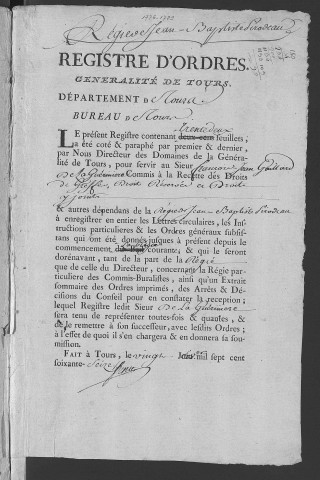 1776-1777
Régie de Jean-Baptiste Pirodeau
REGISTRE D'ORDRES.
GENERALITÉ DE TOURS.
DÉPARTEMENT D
BUREAU D
trente deux
LE présent Registre contenant deux cent feuillets;
a été coté & paraphé par premier & dernier,
par Nous Directeur des Domaines de la Généra-
lité de Tours, pour servir au Sieur François Jean Guillard
De la Guidemore Commis à la Recette des Droits
de Greffes, Droits Réservés et Droits
y Joints
& autres dépendans de la Régie de Jean-Baptiste Pirodeau
à enregistrer en entier les Lettres circulaires, les Ins-
tructions particulieres & les Ordres généraux subsis-
tans qui ont été donnés jusques à présent depuis le
commencement courante, & qui le seront
dorénavant, tant de la part de la Régie
que de celle du Directeur, concernans la Régie par-
ticuliere des Commis-Buralistes, ainsi qu'un Extrait
sommaire des Ordres imprimés, des Arrêts & Dé-
cisions du Conseil pour en constater la réception;
lequel Registre ledit Sieur De la Guidemore
sera tenu de représenter toutes-fois & quantes, &
de le remettre à son successeur, avec lesdits Ordres;
à l'effet de quoi il s'en chargera & en donnera sa sou-
mission.
FAIT à Tours, le vingt Juin mil sept cent
soixante-Seize